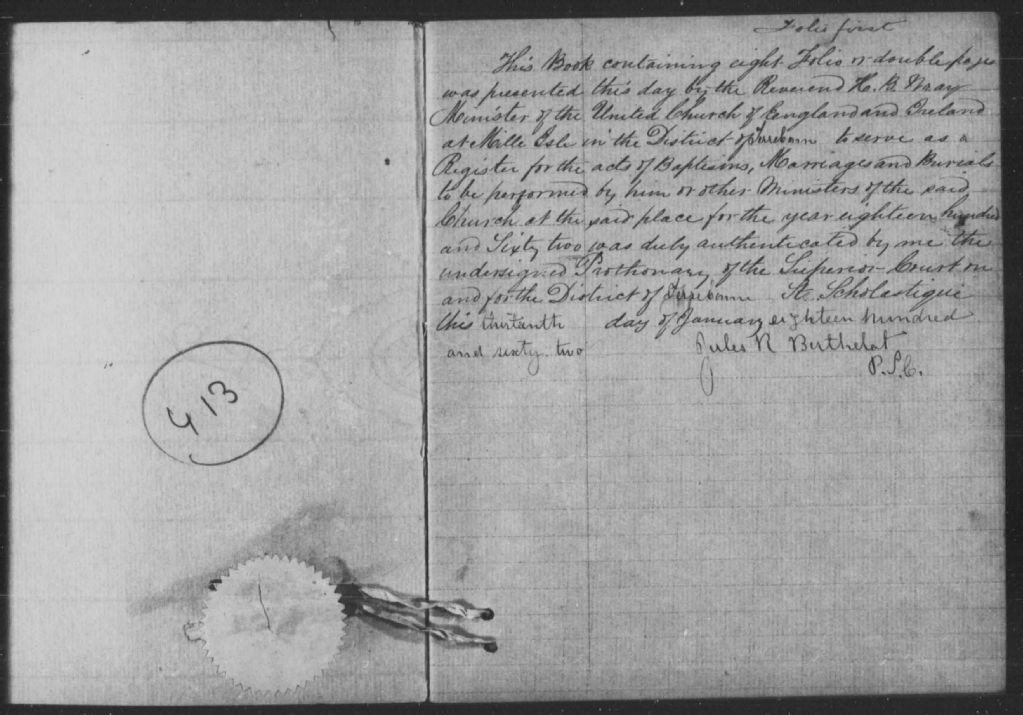 413
Folio first
This Book containing eight Folio or double pages
was presented this day by the Reverend H. B. Wray
Minister of the United Church of England and Ireland
at Mille Isle in the District of Terrebonne to serve as a
Register for the acts of Baptisms, Marriages and Burials
to be performed by him or other Ministers of the said
Church at the said place for the year eighteen hundred
and Sixty two was duly authenticated by me the
undersigned Prothonary of the Superior Court in
and for the District of Terrebonne St. Scholastique
this thirteenth day of January eighteen hundred
and sixty two Jules R Berthelot
P.S.C.